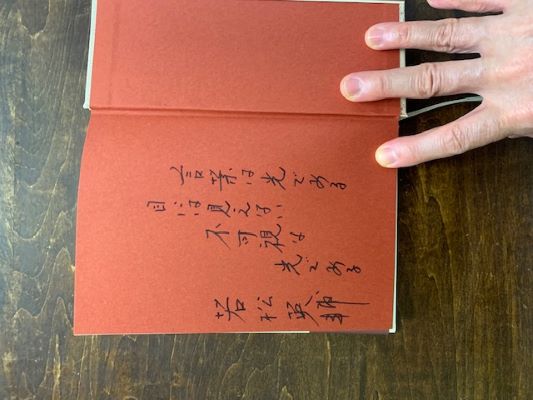 言葉は光である
目には見えない
不可視な
光である
若松英輔